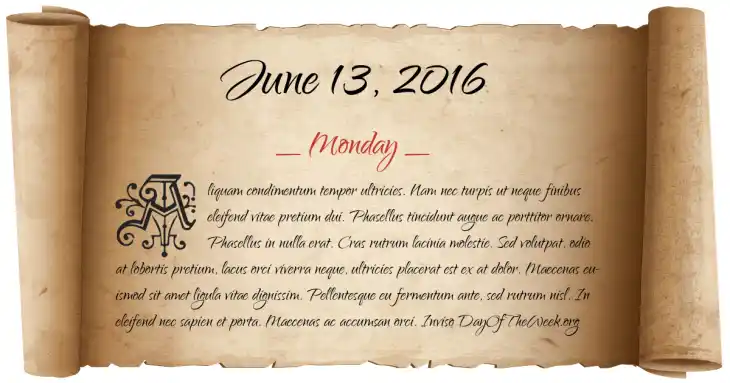 June 13, 2016
_ Monday _
Aliquam condimentum tempor ultricies. Nam nec turpis ut neque finibus
eleifend vitae pretium dui. Phasellus tincidunt augue ac porttitor ornare.
Phasellus in nulla erat. Cras rutrum lacinia molestie. Sed volutpat, odio
at lobortis pretium, lacus orci viverra neque, ultricies placerat est ex at dolor. Maecenas eu-
ismod sit amet ligula vitae dignissim. Pellentesque eu fermentum ante, sed rutrum nisl. In
eleifend nec sapien et porta. Maecenas ac accumsan orci. Invisq DayOfTheWeek.org